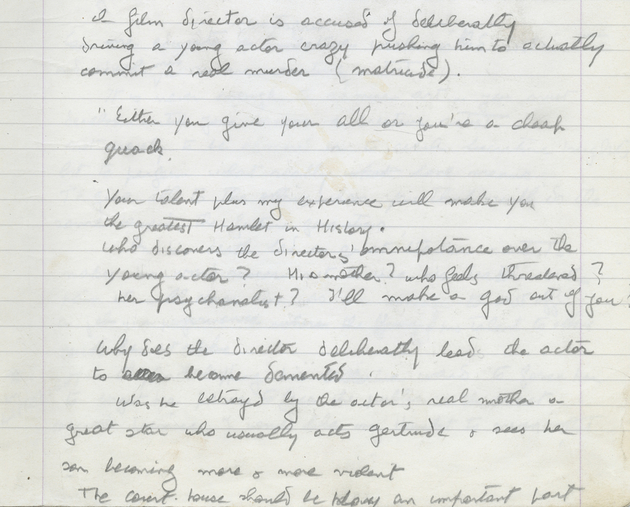 A film director is accused of deliberatly
driving a young actor crazy pushing him to actually
commit a real murder (matricide).
"Either you give your all or you're a cheap
quack.
Your talent plus my experience will make you
the greatest Hamlet in History.
who discovers the directors' omnipotance over the
young actor? His mother? who feels threatened?
her psychanalist? I'll make a god out of you!
Why does the director deliberatly lead the actor
to become demented.
Was he betrayed by the actor's real mother a
great star who usually acts Gertrude & sees her
son becoming more & more violent
The court-house should be an important part